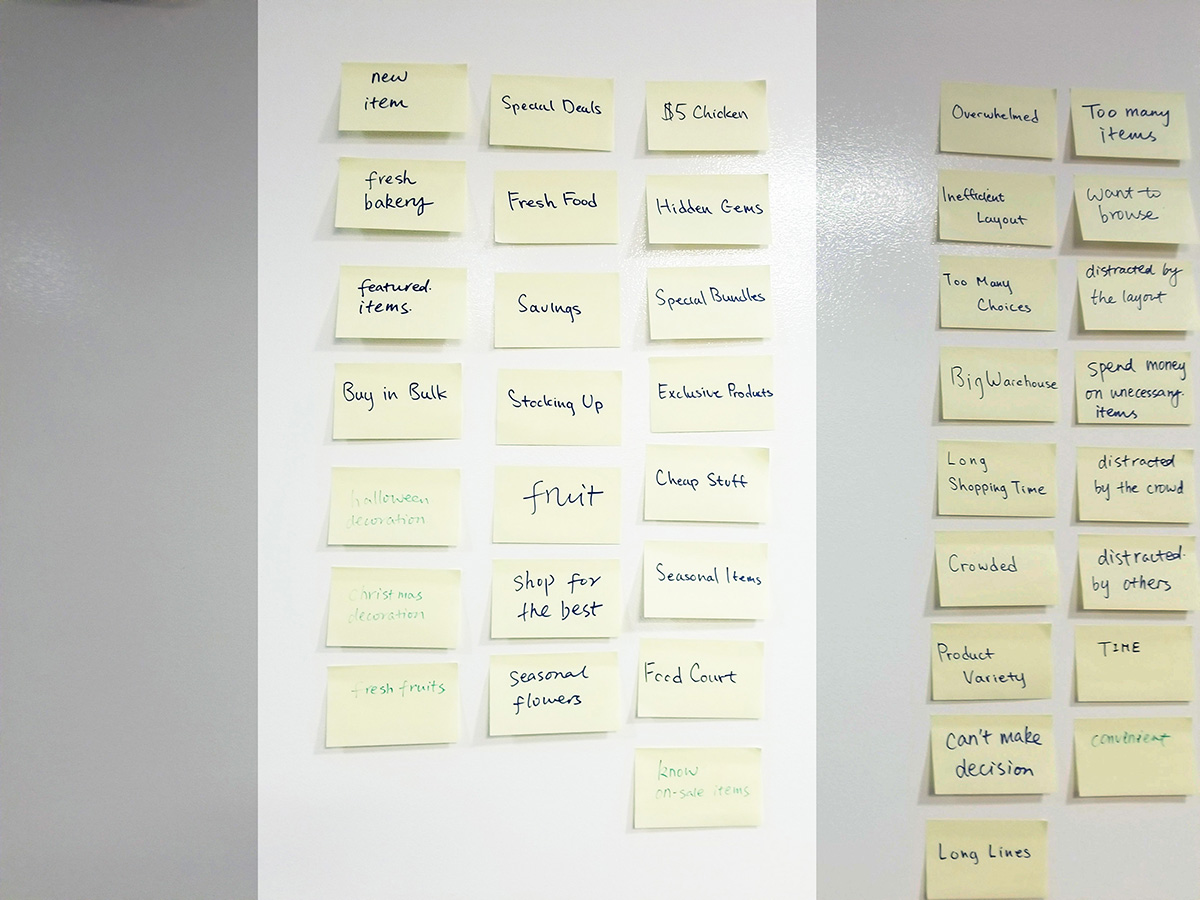 new
item
fresh
bakery
featured.
items.
Buy in Bulk
halloween
decoration
christmas
decoration
fresh fruits
Special Deals
Fresh Food
Savings
Stocking Up
fruit
shop for
the best
seasonal
flowers
$5 Chicken
Hidden Gems
Special Bundles
Exclusive Products
Cheap Stuff
Seasonal Items
Food Court
know
on-sale items
Overwhelmed
Inefficient
Layout
Too Many
Choices
Big Warehouse
Long
Shopping Time
Crowded
Product
Variety
can't make
decision
Long Lines
Too many
items
want to
browse
distracted by
the layout
spend money
on unecessary.
items
distracted
by the crowd
distracted.
by others
TIME
convenient